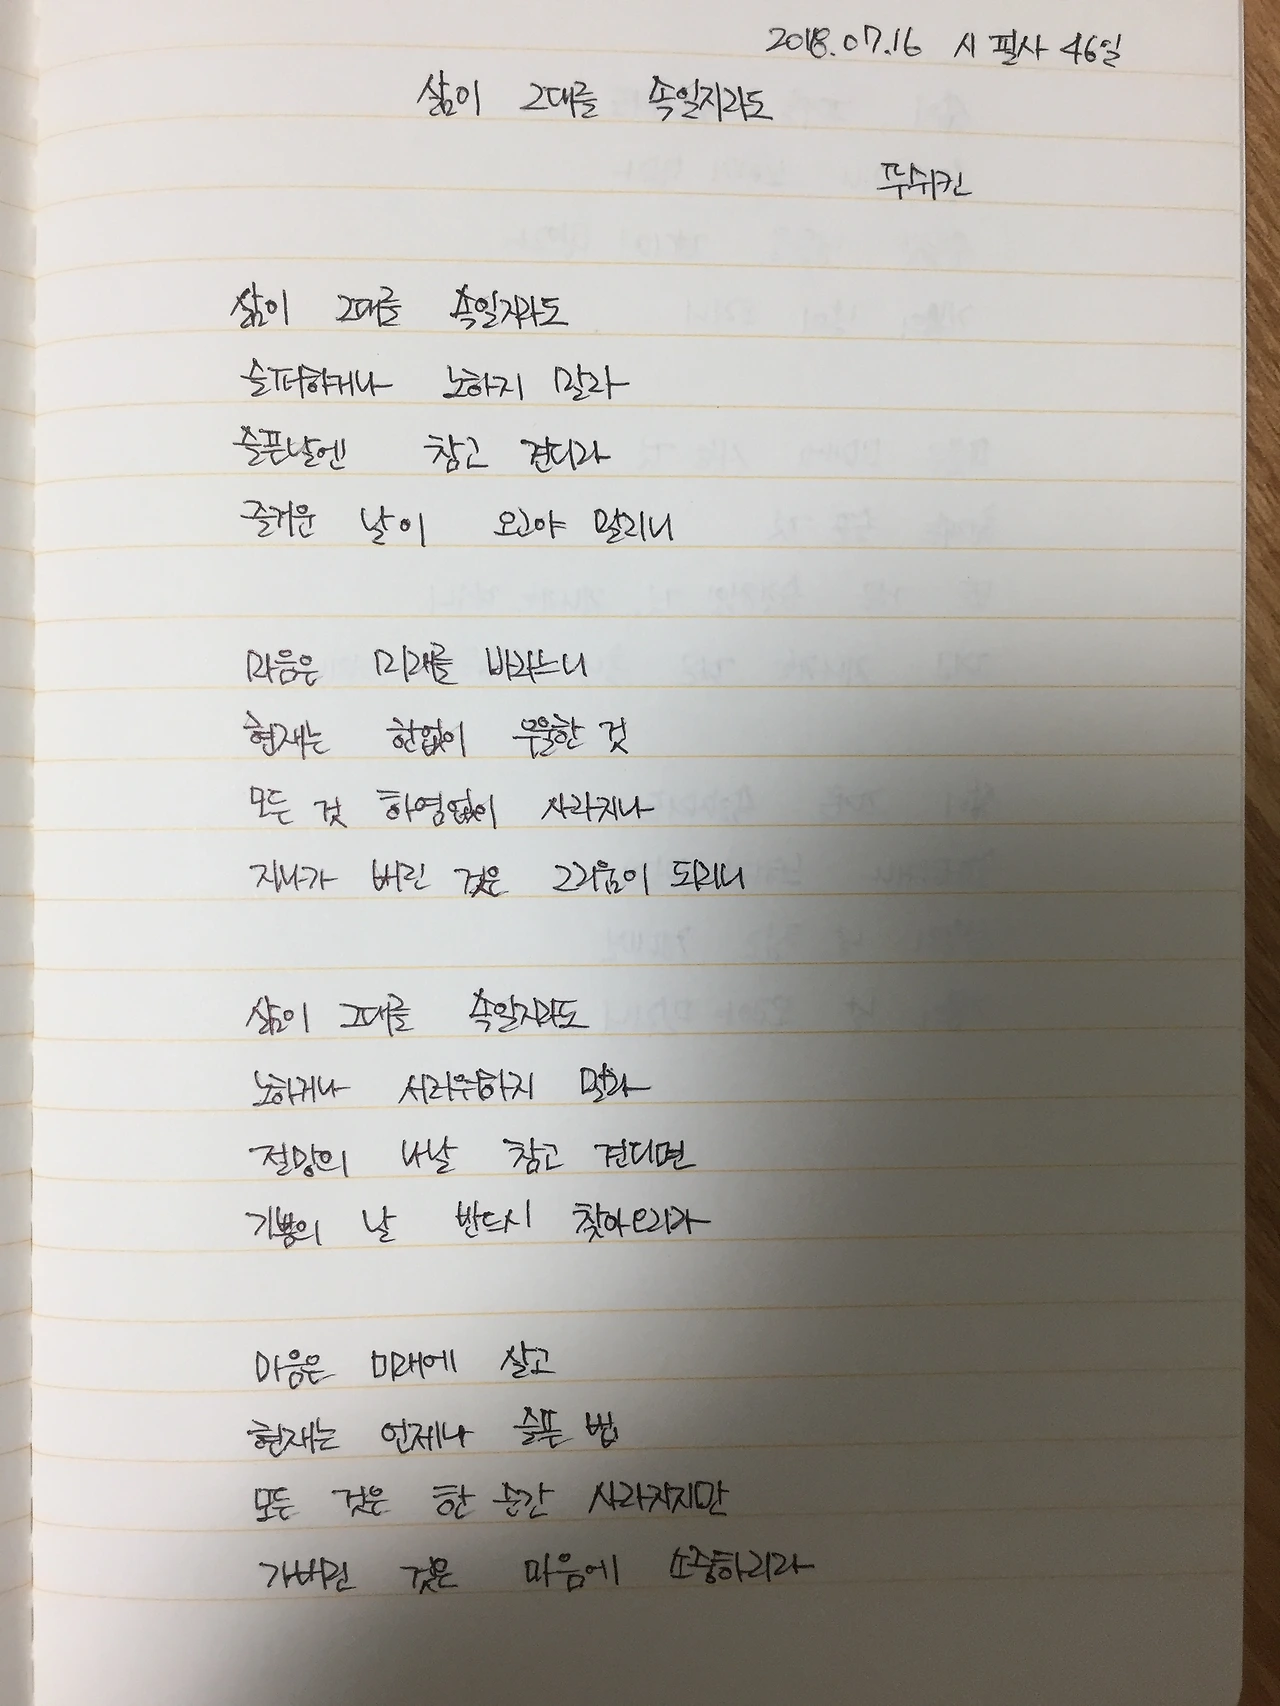 2018.07.16 시 필사 46일
삶이 그대를 속일지라도
뿌쉬킨
삶이 그대를 속일지라도
슬퍼하거나 노하지 말라
슬픈날엔 참고 견디라
즐거운 날이 오고야 말리니
마음은 미래를 바라느니
현재는 한없이 우울한 것
모든 것 하염없이 사라지나
지나가 버린 것은 그리움이 되리니
삶이 그대를 속일지라도
노하거나 서러워하지 말라
절망의 나날 참고 견디면
기쁨의 날 반드시 찾아오리라
마음은 미래에 살고
현재는 언제나 슬픈 법
모든 것은 한 순간 사라지지만
가버린 것은 마음에 소중하리라